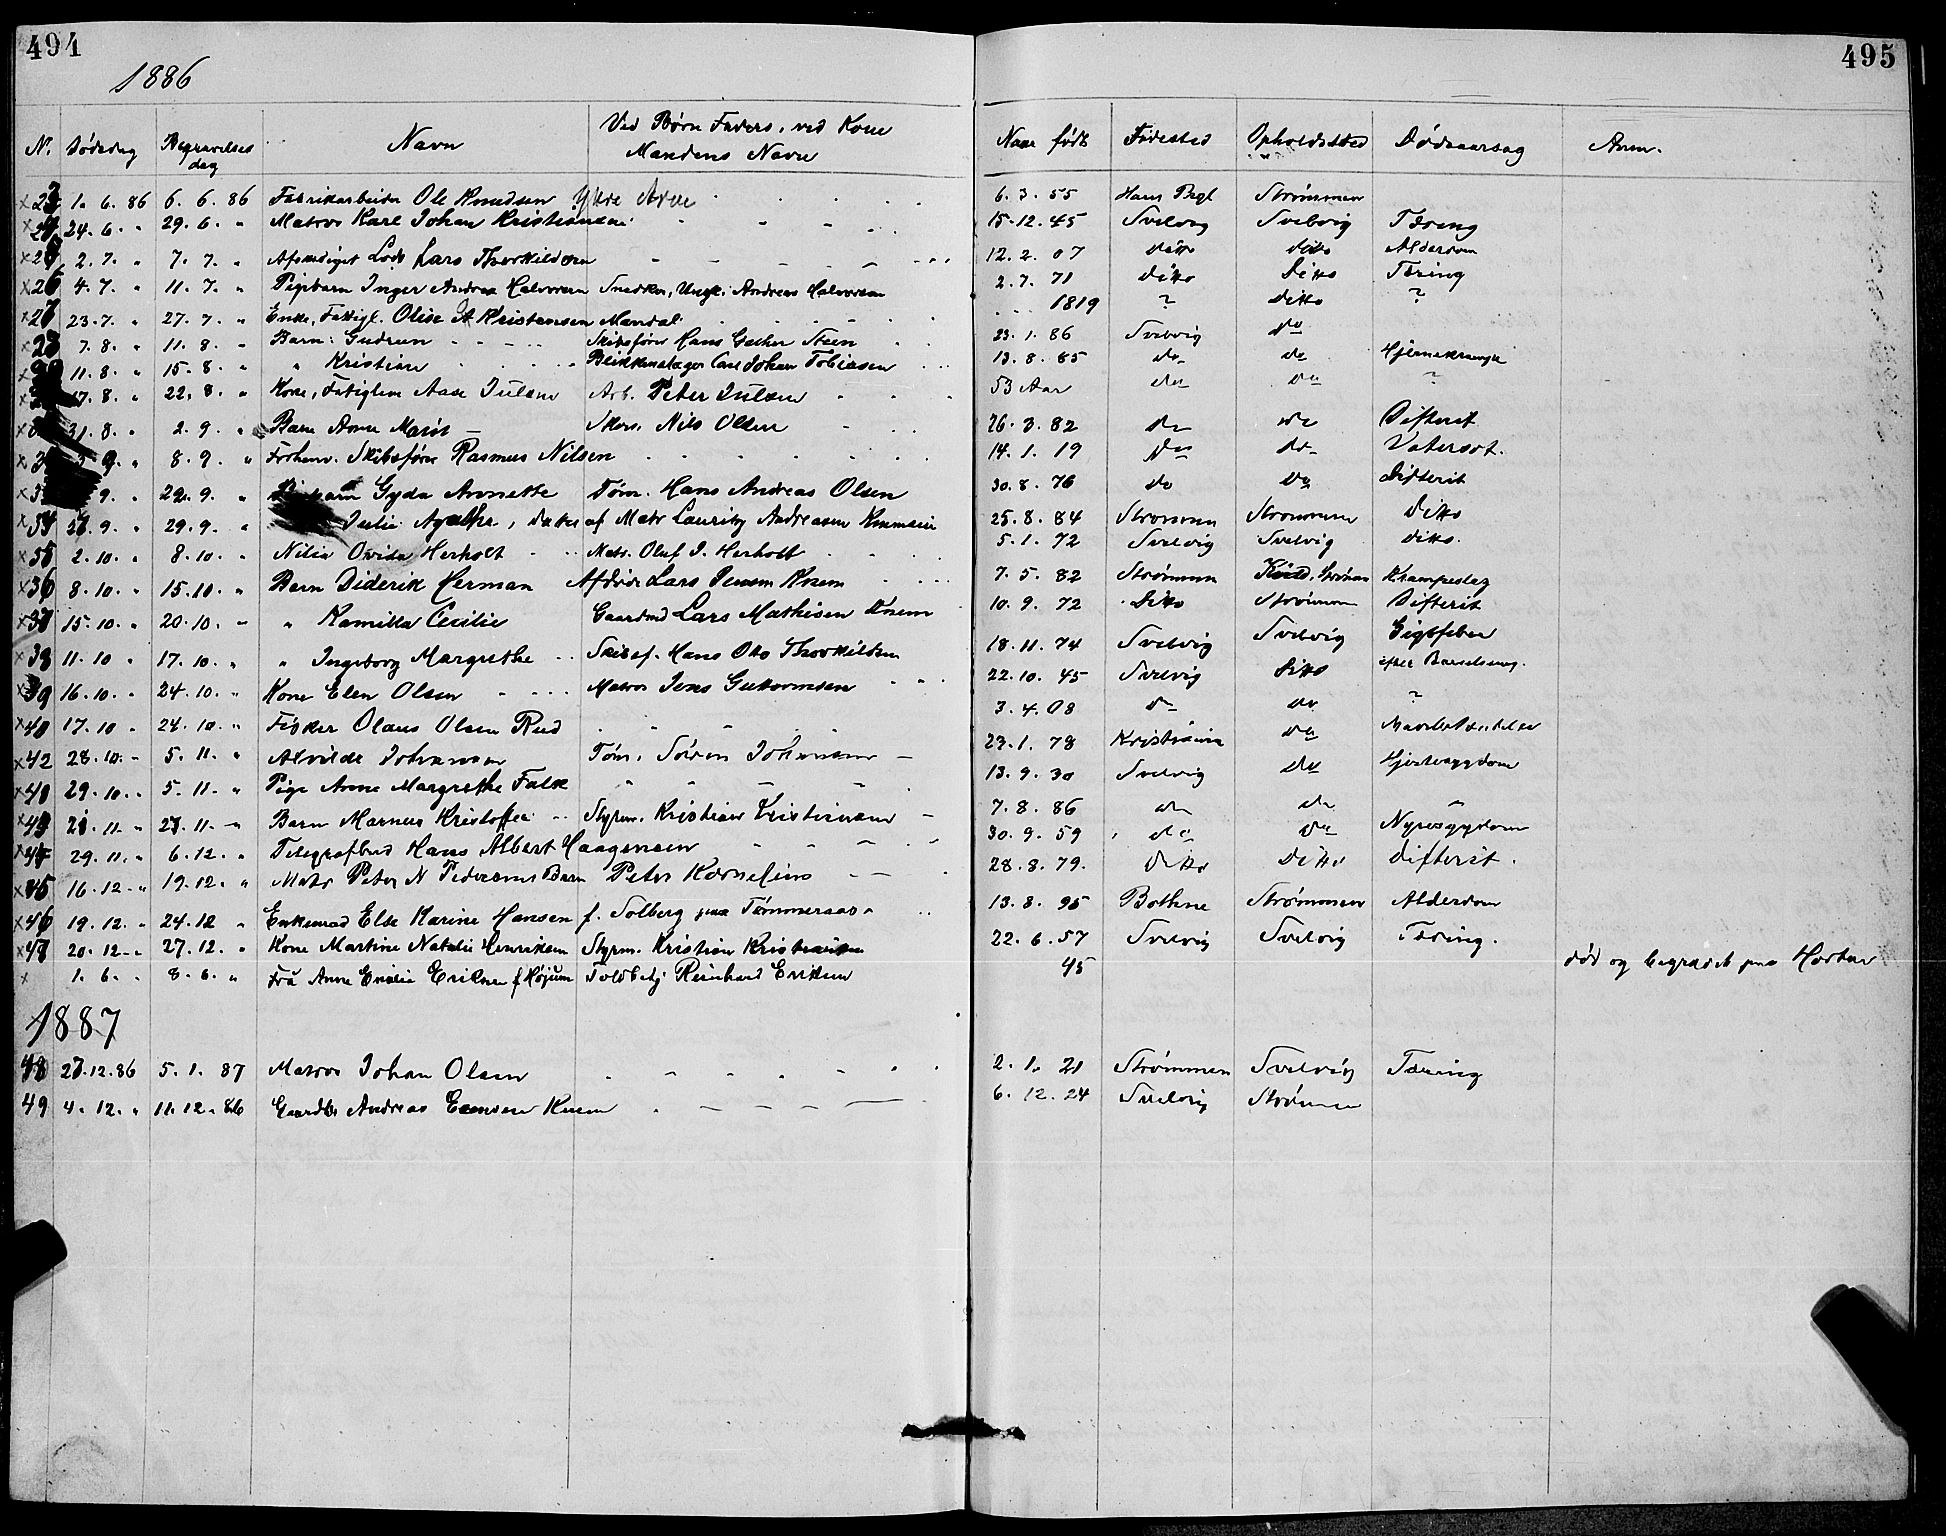 494
1886
N. Dødsdag Begravelses dag Navn Ved Børn Faders, ved Kone Mandens Navn
×23 1. 6. 86 6. 6. 86 Fabrikarbeider Ole Knudsen
×24 24. 6. " 29. 6. " Matros Karl Johan Kristiansen
×25 2. 7. " 7. 7. " Afskediget Lods Lars Thorkildsen
×26 4. 7. " 11. 7. " Pigebarn Inger Andrea Halvorsen Snedker, Andreas Halvorsen
×27 23. 7. " 27. 7. " Enke, Fattigl. Olise A Kristensen Mandal
×28 7. 8. " 11. 8. " Barn: Gudrun Skibsfører Hans Steen
× 11. 8. " 15. 8. " " Kristian Blikkenslager Carl Johan Tobiasen
× 17. 8. " 22. 8. " Kone, Fattiglem Aase Julsen Arb. Peter Julsen
× 31. 8. " 2. 9. " Barn Anna Marie Nils Olsen
× 9. " 8. 9. " Forhenv. Skibsfører Rasmus Nilsen
× 9. " 29. 9. " Gyda Annette Tøm. Hans Andreas Olsen
×34 9. " 29. 9. " Julie Agathe, datter af Matr Lauritz Andreasen
×35 2. 10. " 8. 10. " Herholt Matr. Oluf J. Herholt
×36 8. 10. " 15. 10. " Barn Diderik Herman Lars Jensen Knem
×37 15. 10. " 20. 10. " " Kamilla Cecilie Gaardmd Lars Mathisen Knem
×38 11. 10 " 17. 10. " " Ingeborg Margrethe Skibsf. Hans Oto Thorkildsen
×39 16. 10. " 24. 10. " Kone Elen Olsen Matros Jens Guttormsen
×40 17. 10 " 24. 10. " Fisker Olaus Olsen Rud
×42 28. 10. " 5. 11. " Alvilde Johansen Tøm. Søren Johansen
×41 29. 10. " 5. 11. " Pige Anne Margrethe Falck
×43 11. " 23. 11. " Barn Marnus Kristoffer Styrm. Kristian Kristiansen
×44 29. 11. " 6. 12. " Telegrafbud Hans Albert Haagensen
×45 16. 12. " 19. 12. " Matr Peter N Pedersens Barn Peter Kornelius
×46 19. 12. " 24. 12 " Enkemad Else Karine Hansen f. Solberg paa Tømmeraas
×47 20. 12. " 27. 12. " Kone Martine Natalie Henriksen Styrm. Kristian Kristiansen
× 1. 6. " 8. 6. " Fru Anne Eriksen f Højum Toldbetj Reinhard Eriksen
1887
48 27. 12. 86 5. 1. 87 Matros Johan Olsen
49 4. 12. " 11. 12. 86 Gaardbr Andreas Knem
495
Naar født Fødested Opholdssted Dødsaarsag Anm.
6. 3. 55 Hans Prgl Strømmen
15. 12. 45 Svelvig Svelvig Tæring
12. 2. 07 ditto ditto Alderdom
2. 7. 71 ditto Ditto Tæring
1819 ? Ditto ?
23. 1. 86 Svelvig do
13. 8. 85 do do Hjernekrampe
53 Aar do do ?
26. 3. 82 do do Difterit
14. 1. 19 do do Vatersot.
30. 8. 76 do do Difterit
25. 8. 84 Strømmen Strømmen Ditto
5. 1. 72 Svelvig Svelvig ditto.
7. 5. 82 Strømmen Strømmen Krampeslag
10. 9. 72 Ditto Strømmen Difterit
18. 11. 74 Svelvig Svelvig Gigtfeber
22. 10. 45 Svelvig Ditto efter Barselseng.
3. 4. 08 do do ?
23. 1. 78 Kristiania do
13. 9. 30 Svelvig do Hjertesygdom
7. 8. 86 do do "
30. 9. 59 do do Nyresygdom
28. 8. 79. Ditto Ditto difterit.
13. 8. 95 Bothne Strømmen Alderdom
22. 6. 57 Svelvig Svelvig Tæring.
45 død og begravet paa Horten
2. 1. 21 Strømmen Svelvig Tæring
6. 12. 24 Svelvig Strømmen